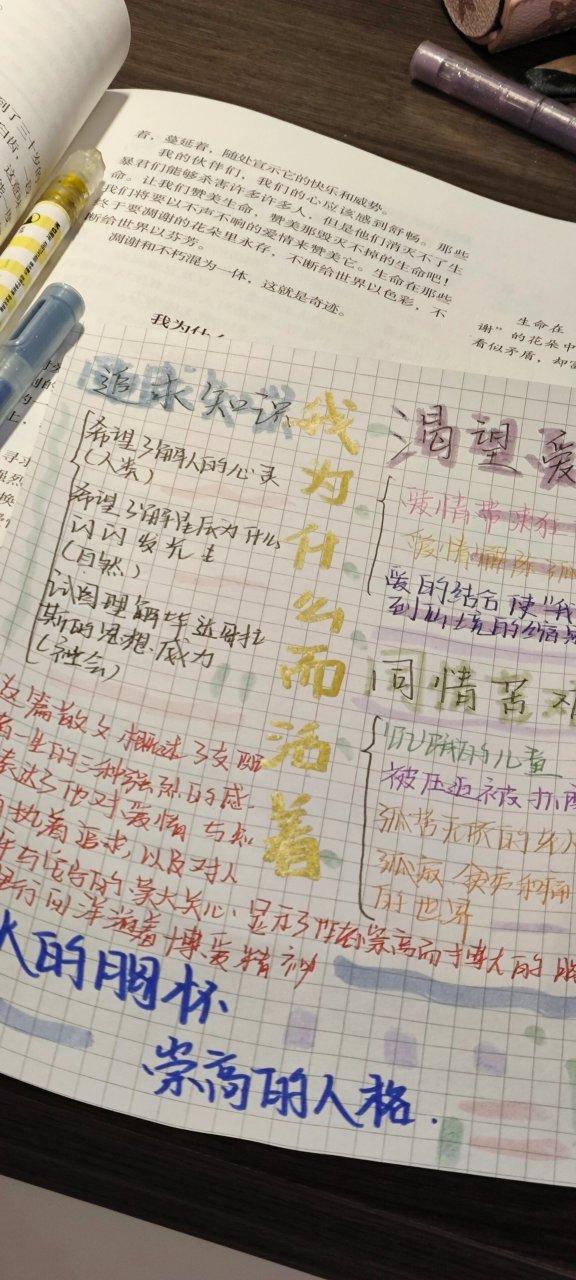 着，蔓延着，随处宣示它的快乐和威势。
我的伙伴们，我们的心应该感到舒畅。那些
暴君们能够杀害许多许多人，但是他们消灭不了生
命。让我们赞美生命，赞美那毁灭不掉的生命吧！
我们将要以不声不响的爱情来赞美它。生命在那些
终于要凋谢的花朵里永存，不断给世界以色彩，不
断给世界以芬芳。
凋谢和不朽混为一体，这就是奇迹。
我为什
生命在
谢”的花朵中
看似矛盾，却
追求知识
希望了解人的心灵
(人类)
希望了解星辰为什么
闪闪发光
(自然)
试图理解毕达哥拉
斯的思想威力
(社会)
我为什么而活着
渴望爱
爱情带来狂
爱情解除孤
爱的结合使“我
到仙境的缩
同情苦难
饥饿的儿童
被压迫被折磨
孤苦无依的老人
孤寂、贫穷和痛
的世界
这篇散文概述了支配
一生的三种强烈的感
表达了他对爱情、与知
执着追求，以及对人
的莫大关心、显示了作者崇高而博大的
行间洋溢着博爱精神
大的胸怀
崇高的人格.